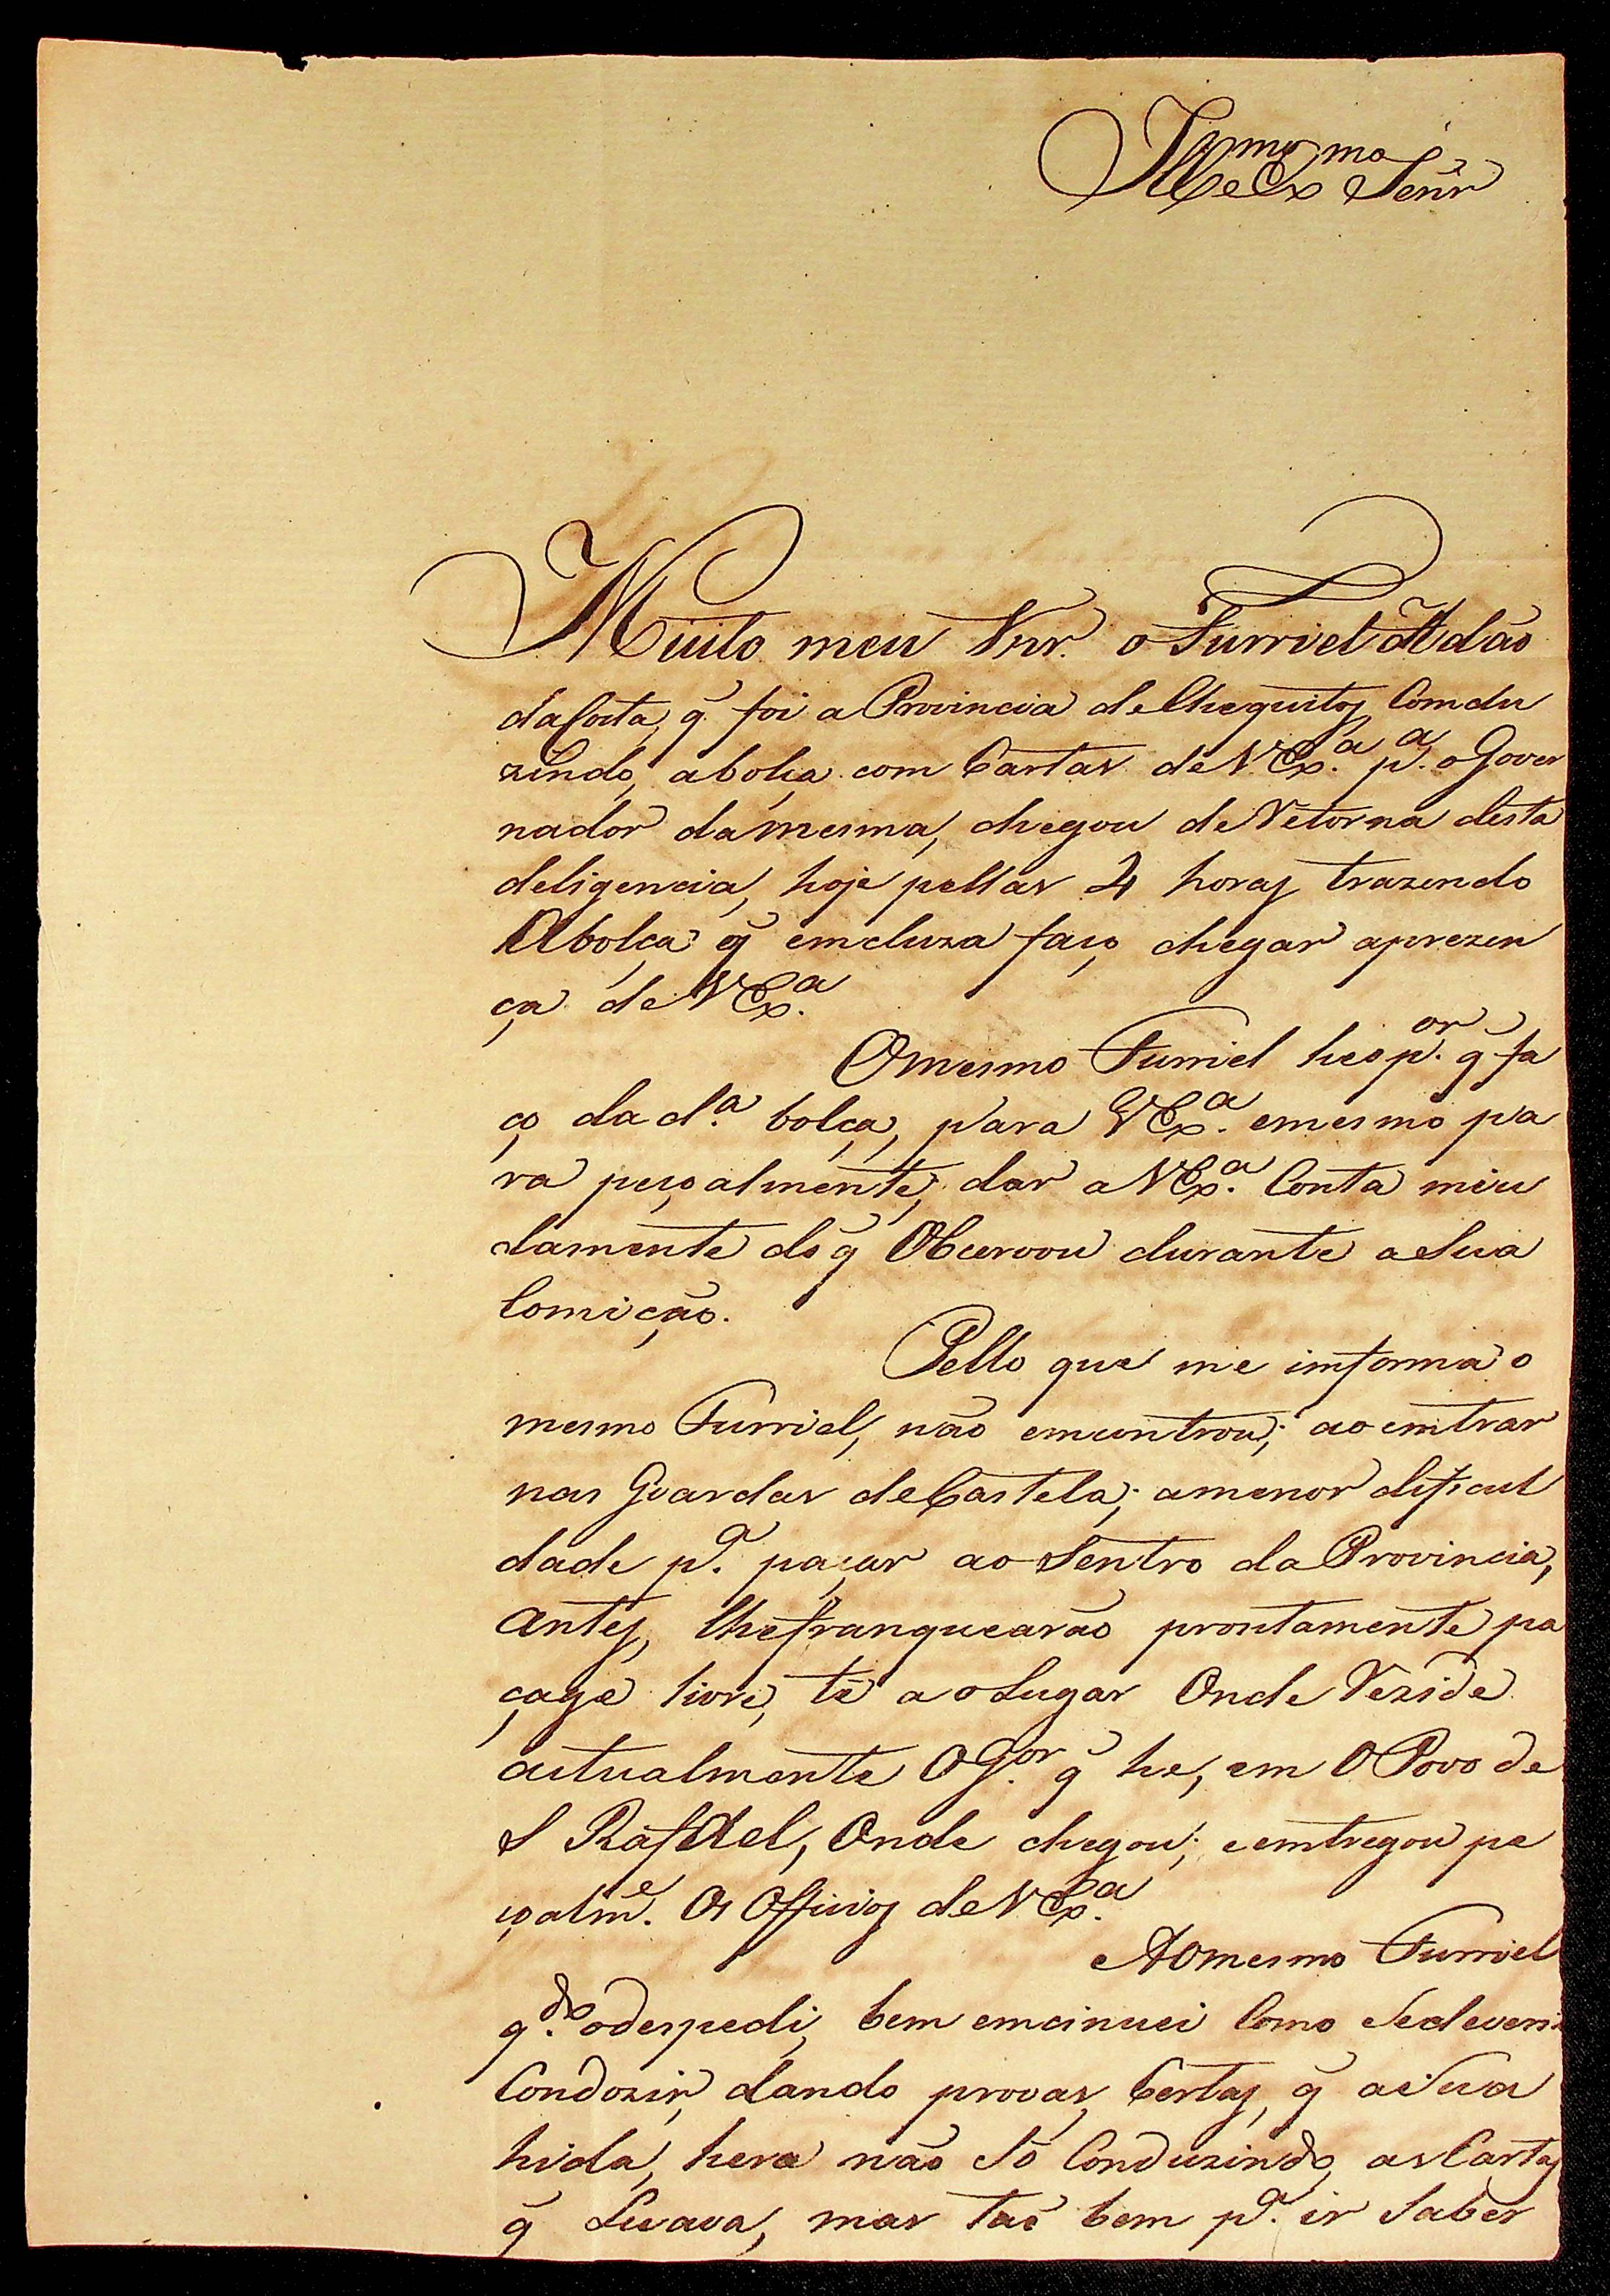 Illmo e Exmo Senr
Muito meu Snr. o Furriel Adão
da Costa, q̃ foi a Provincia de Chequitos Comdu
zindo, a bolça com Cartas de V Exª. pª. o Gover
nador da mesma, chegou de Retorna desta
deligencia, hoje pellas 4 horas trazendo
A bolça q̃ emcluza faço chegar aprezen
ça de V Exª.
O mesmo Furriel he o por. q̃ fa
ço da dª. bolça, para V Exª. e mesmo pa
ra peçoalmente, dar a V Exª. Conta miu
damente do q̃ Obcervou durante a Sua
Comição.
Pello que me imforma o
mesmo Furriel, não emcontrou; ao emtrar
nas Guardas de Castela; a menor dificul
dade pª. paçar ao Sentro da Provincia,
antes, lhe franquearão prontamente pa
çage livre, té ao Lugar Onde Rezide
actualmente O Gor. q̃ he, em O Povo de
S Rafael, Onde chegou; e emtregou pe
çoalme. Os Officios de V Exª.
Ao mesmo Furriel
qdo. o despedi, bem emcinuei Como Se deveria
Condozir, dando provas Certas, q̃ a Sua
hida, hera não Só Conduzindo, as Cartas
q̃ Levava, mas tão bem pª. ir Saber